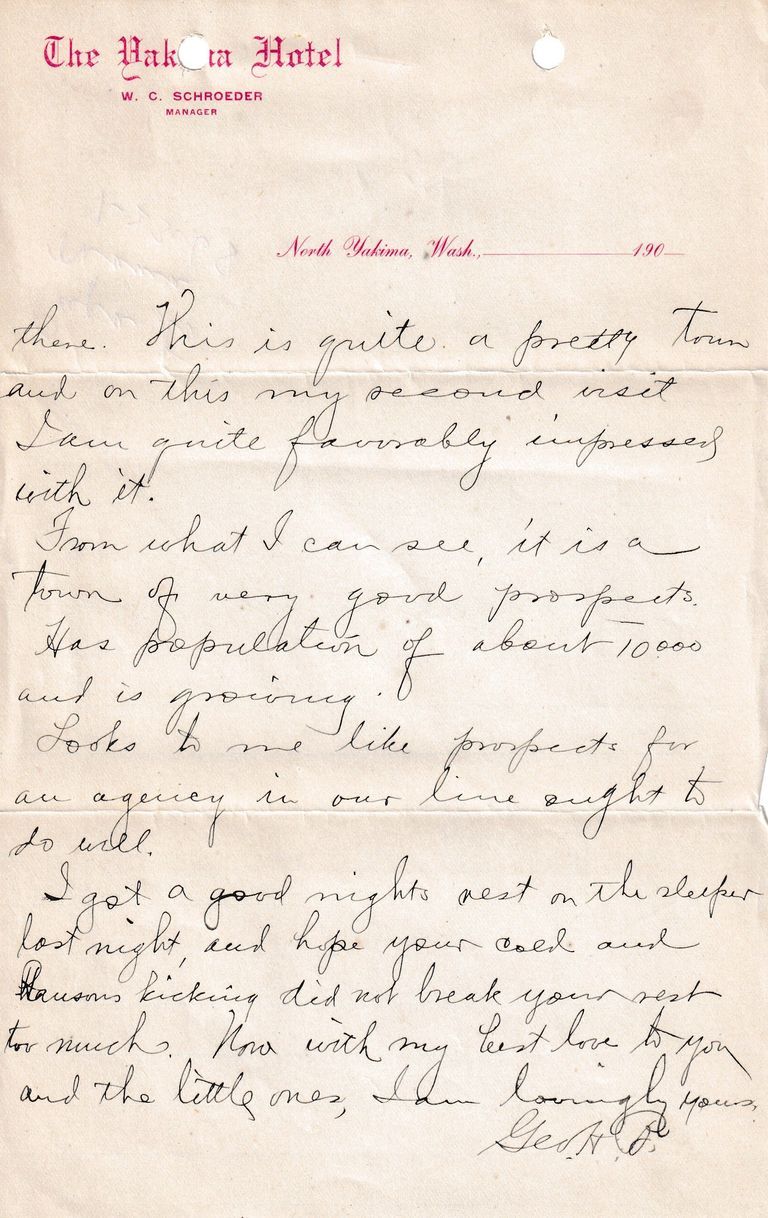 The Yakima Hotel
W. C. SCHROEDER
MANAGER
North Yakima, Wash., 190
there. This is quite a pretty town
and on this my second visit
I am quite favorably impressed
with it.
From what I can see, it is a
town of very good prospects.
Has population of about 10000
and is growing.
Looks to me like prospects for
an agency in our line ought to
do well.
I got a good nights rest on the sleeper
last night, and hope your cold and
kicking did not break your rest
too much. Now with my best love to you
and the little ones, I am lovingly yours,
Geo. H.